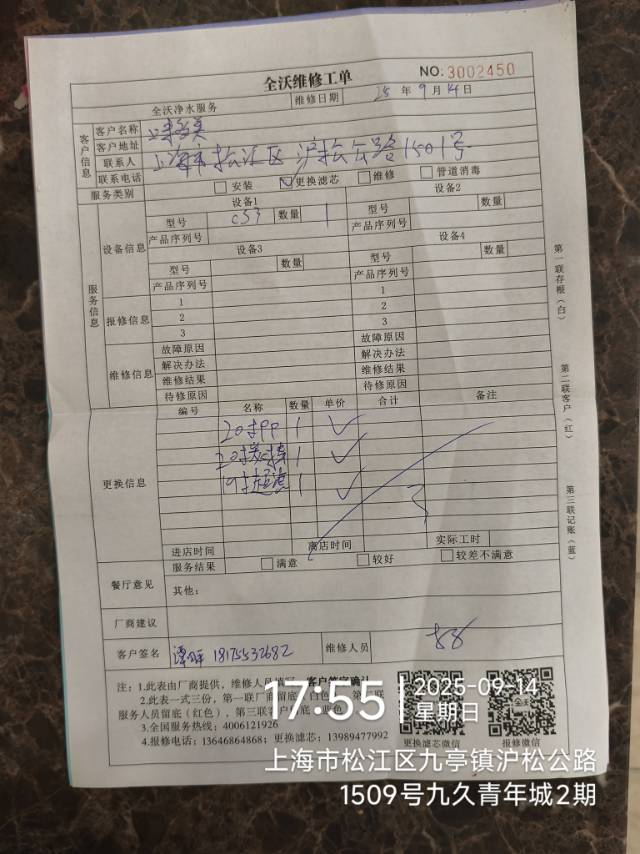 全沃维修工单
NO: 3002450
全沃净水服务
维修日期
25 年 9 月 14 日
客户信息
客户名称
客户地址
上海市松江区沪松公路1501号
联系人
联系电话
服务类别
安装
更换滤芯
维修
管道消毒
服务信息
设备信息
设备1
设备2
型号 C53 数量 1
型号 数量
产品序列号
产品序列号
设备3
设备4
型号 数量
型号 数量
产品序列号
产品序列号
报修信息
1
1
2
2
3
3
维修信息
故障原因
故障原因
解决办法
解决办法
维修结果
维修结果
待修原因
待修原因
更换信息
编号 名称 数量 单价 合计 备注
20寸PP 1 ✓
20寸炭棒 1 ✓
19寸超滤 1 ✓
进店时间 离店时间 实际工时
服务结果 满意 较好 较差不满意
餐厅意见
其他:
厂商建议
客户签名
18175532682
维修人员
注: 1.此表由厂商提供, 维修人员 客户签字确认
2.此表一式三份, 第一联厂商留底(白色)
服务人员留底(红色), 第三联客户留底(蓝色)
3.全国服务热线: 4006121926
4.报修电话: 13646864868; 更换滤芯: 13989477992
更换滤芯微信
报修微信
第一联存根(白)
第二联客户(红)
第三联记账(蓝)
17:55
2025-09-14
星期日
上海市松江区九亭镇沪松公路
1509号九久青年城2期